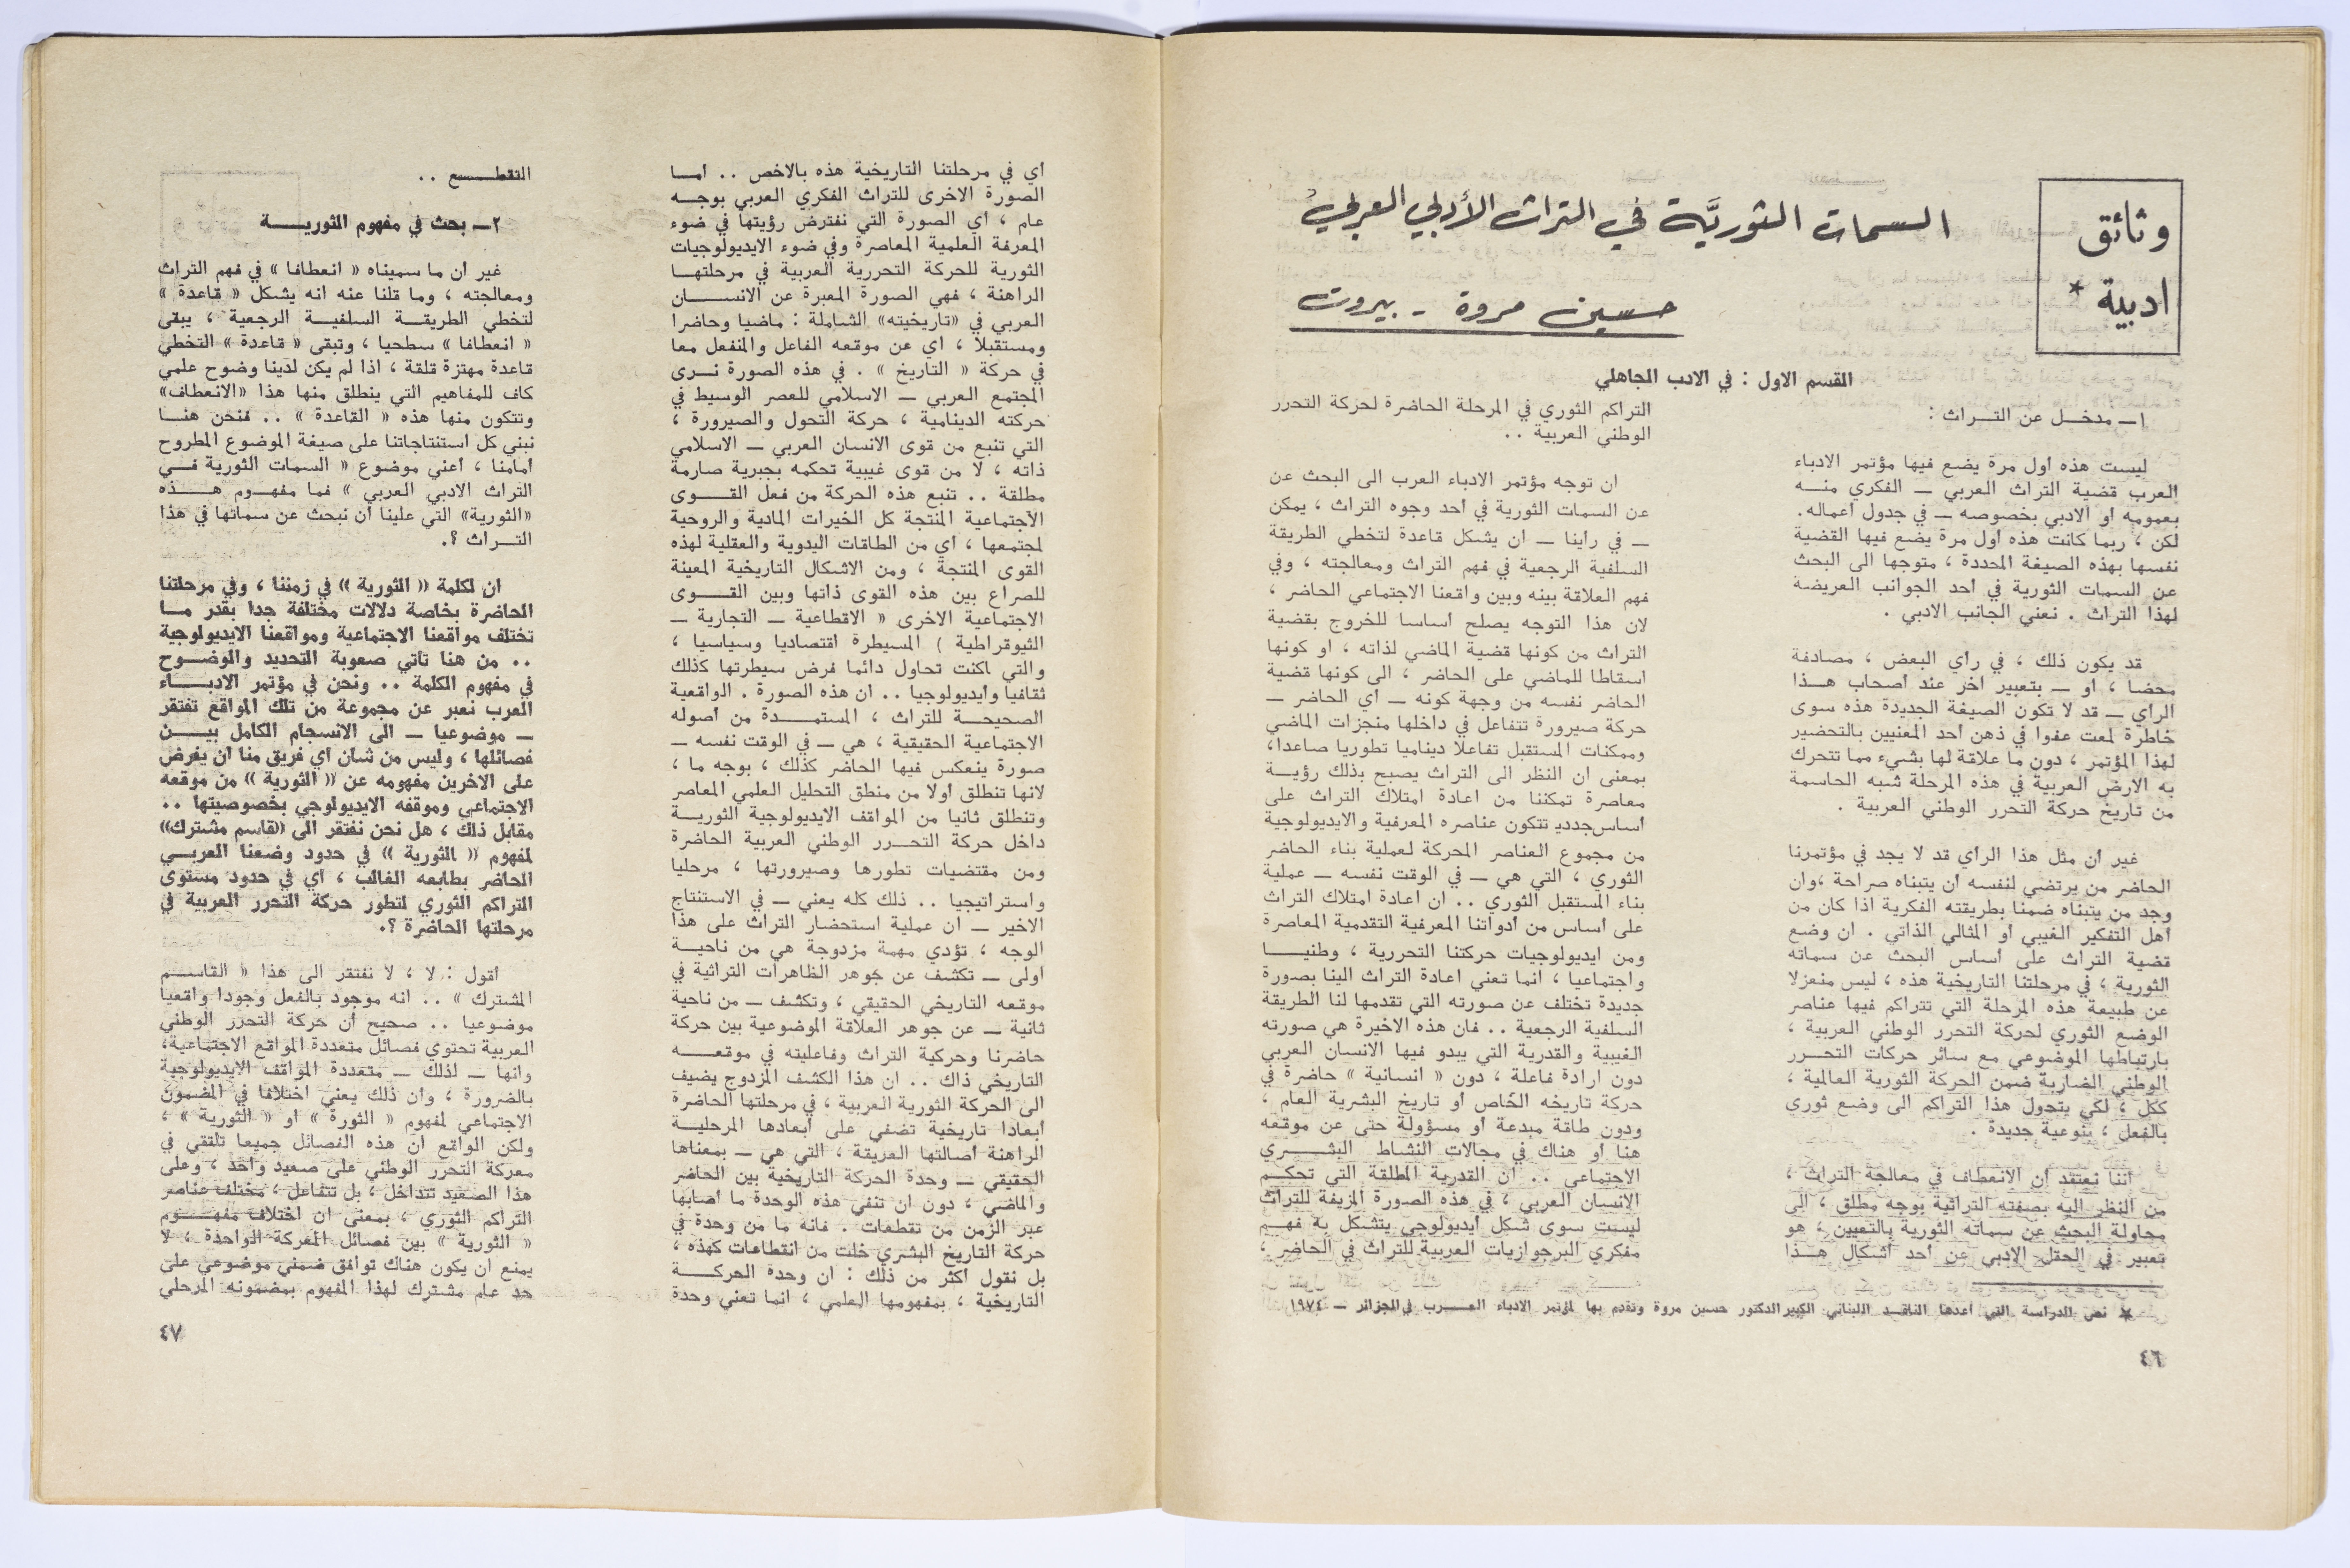 وثائق
ادبية *
السمات الثوريَّة في التراث الأدبي العربي
حسين مروة - بيروت
القسم الاول : في الادب الجاهلي
١ــ مدخــل عن التــراث :
ليست هذه اول مرة يضع فيها مؤتمر الادباء
العرب قضية التراث العربي ــ الفكري منــه
بعمومه او الادبي بخصوصه ــ في جدول اعماله.
لكن ، ربما كانت هذه اول مرة يضع فيها القضية
نفسها بهذه الصيغة المحددة ، متوجها الى البحث
عن السمات الثورية في احد الجوانب العريضة
لهذا التراث . نعني الجانب الادبي .
قد يكون ذلك ، في راي البعض ، مصادفة
محضا ، او ــ بتعبير اخر عند اصحاب هــذا
الراي ــ قد لا تكون الصيغة الجديدة هذه سوى
خاطرة لمعت عفوا في ذهن احد المعنيين بالتحضير
لهذا المؤتمر ، دون ما علاقة لها بشيء مما تتحرك
به الارض العربية في هذه المرحلة شبه الحاسمة
من تاريخ حركة التحرر الوطني العربية .
غير ان مثل هذا الراي قد لا يجد في مؤتمرنا
الحاضر من يرتضي لنفسه ان يتبناه صراحة ،وان
وجد من يتبناه ضمنا بطريقته الفكرية اذا كان من
اهل التفكير الغيبي او المثالي الذاتي . ان وضع
قضية التراث على اساس البحث عن سماته
الثورية ، في مرحلتنا التاريخية هذه ، ليس منعزلا
عن طبيعة هذه المرحلة التي تتراكم فيها عناصر
الوضع الثوري لحركة التحرر الوطني العربية ،
بارتباطها الموضوعي مع سائر حركات التحــرر
الوطني الضاربة ضمن الحركة الثورية العالمية ،
ككل ، لكي يتحول هذا التراكم الى وضع ثوري
بالفعل ، بنوعية جديدة .
اننا نعتقد ان الانعطاف في معالجة التراث ،
من النظر اليه بصفته التراثية بوجه مطلق ، الى
محاولة البحث عن سماته الثورية بالتعيين ، هو
تعبير في الحقل الادبي عن احد اشكال هــذا
التراكم الثوري في المرحلة الحاضرة لحركة التحرر
الوطني العربية ..
ان توجه مؤتمر الادباء العرب الى البحث عن
عن السمات الثورية في احد وجوه التراث ، يمكن
ــ في راينا ــ ان يشكل قاعدة لتخطي الطريقة
السلفية الرجعية في فهم التراث ومعالجته ، وفي
فهم العلاقة بينه وبين واقعنا الاجتماعي الحاضر ،
لان هذا التوجه يصلح اساسا للخروج بقضية
التراث من كونها قضية الماضي لذاته ، او كونها
اسقاطا للماضي على الحاضر ، الى كونها قضية
الحاضر نفسه من وجهة كونه ــ اي الحاضر ــ
حركة صيرورة تتفاعل في داخلها منجزات الماضي
وممكنات المستقبل تفاعلا ديناميا تطوريا صاعدا،
بمعنى ان النظر الى التراث يصبح بذلك رؤيــة
معاصرة تمكننا من اعادة امتلاك التراث على
اساس جديد تتكون عناصره المعرفية والايديولوجية
من مجموع العناصر المحركة لعملية بناء الحاضر
الثوري ، التي هي ــ في الوقت نفسه ــ عملية
بناء المستقبل الثوري .. ان اعادة امتلاك التراث
على اساس من ادواتنا المعرفية التقدمية المعاصرة
ومن ايديولوجيات حركتنا التحررية ، وطنيــا
واجتماعيا ، انما تعني اعادة التراث الينا بصورة
جديدة تختلف عن صورته التي تقدمها لنا الطريقة
السلفية الرجعية .. فان هذه الاخيرة هي صورته
الغيبية والقدرية التي يبدو فيها الانسان العربي
دون ارادة فاعلة ، دون « انسانية » حاضرة في
حركة تاريخه الخاص او تاريخ البشرية العام ،
ودون طاقة مبدعة او مسؤولة حتى عن موقعه
هنا او هناك في مجالات النشاط البشــري
الاجتماعي .. ان القدرية المطلقة التي تحكــم
الانسان العربي ، في هذه الصورة المزيفة للتراث
ليست سوى شكل ايديولوجي يتشكل به فهــم
مفكري البرجوازيات العربية للتراث في الحاضر ،
* نص الدراسة التي اعدها الناقــد اللبناني الكبير الدكتور حسين مروة وتقدم بها لمؤتمر الادباء العــرب في الجزائر ــ ١٩٧٤
٤٦
اي في مرحلتنا التاريخية هذه بالاخص .. امــا
الصورة الاخرى للتراث الفكري العربي بوجــه
عام ، اي الصورة التي نفترض رؤيتها في ضوء
المعرفة العلمية المعاصرة وفي ضوء الايديولوجيات
الثورية للحركة التحررية العربية في مرحلتهــا
الراهنة ، فهي الصورة المعبرة عن الانســان
العربي في «تاريخيته» الشاملة : ماضيا وحاضرا
ومستقبلا ، اي عن موقعه الفاعل والمنفعل معا
في حركة « التاريخ » . في هذه الصورة نــرى
المجتمع العربي ــ الاسلامي للعصر الوسيط في
حركته الدينامية ، حركة التحول والصيرورة ،
التي تنبع من قوى الانسان العربي ــ الاسلامي
ذاته ، لا من قوى غيبية تحكمه بجبرية صارمة
مطلقة .. تنبع هذه الحركة من فعل القــوى
الاجتماعية المنتجة كل الخيرات المادية والروحية
لمجتمعها ، اي من الطاقات اليدوية والعقلية لهذه
القوى المنتجة ، ومن الاشكال التاريخية المعينة
للصراع بين هذه القوى ذاتها وبين القــوى
الاجتماعية الاخرى « الاقطاعية ــ التجارية ــ
الثيوقراطية ) المسيطرة اقتصاديا وسياسيا ،
والتي اكنت تحاول دائما فرض سيطرتها كذلك
ثقافيا وايديولوجيا .. ان هذه الصورة . الواقعية
الصحيحــة للتراث ، المستمــدة من اصوله
الاجتماعية الحقيقية ، هي ــ في الوقت نفسه ــ
صورة ينعكس فيها الحاضر كذلك ، بوجه ما ،
لانها تنطلق اولا من منطق التحليل العلمي المعاصر
وتنطلق ثانيا من المواقف الايديولوجية الثوريــة
داخل حركة التحــرر الوطني العربية الحاضرة
ومن مقتضيات تطورها وصيرورتها ، مرحليا
واستراتيجيا .. ذلك كله يعني ــ في الاستنتاج
الاخير ــ ان عملية استحضار التراث على هذا
الوجه ، تؤدي مهمة مزدوجة هي من ناحيــة
اولى ــ تكشف عن جوهر الظاهرات التراثية في
موقعه التاريخي الحقيقي ، وتكشف ــ من ناحية
ثانية ــ عن جوهر العلاقة الموضوعية بين حركة
حاضرنا وحركية التراث وفاعليته في موقعــه
التاريخي ذاك .. ان هذا الكشف المزدوج يضيف
الى الحركة الثورية العربية ، في مرحلتها الحاضرة
ابعادا تاريخية تضفي على ابعادها المرحليــة
الراهنة اصالتها العريقة ، التي هي ــ بمعناها
الحقيقي ــ وحدة الحركة التاريخية بين الحاضر
والماضي ، دون ان تنفي هذه الوحدة ما اصابها
عبر الزمن من تقطعات . فانه ما من وحدة في
حركة التاريخ البشري خلت من انقطاعات كهذه ،
بل نقول اكثر من ذلك : ان وحدة الحركــة
التاريخية ، بمفهومها العلمي ، انما تعني وحدة
التقطــع ..
٢ــ بحث في مفهوم الثوريــة
غير ان ما سميناه « انعطافا » في فهم التراث
ومعالجته ، وما قلنا عنه انه يشكل « قاعدة »
لتخطي الطريقــة السلفيــة الرجعية ، يبقى
« انعطافا » سطحيا ، وتبقى « قاعدة » التخطي
قاعدة مهتزة قلقة ، اذا لم يكن لدينا وضوح علمي
كاف للمفاهيم التي ينطلق منها هذا «الانعطاف»
وتتكون منها هذه « القاعدة » .. فنحن هنــا
نبني كل استنتاجاتنا على صيغة الموضوع المطروح
امامنا ، اعني موضوع « السمات الثورية فــي
التراث الادبي العربي » فما مفهــوم هــذه
«الثورية» التي علينا ان نبحث عن سماتها في هذا
التــراث ؟.
ان لكلمة « الثورية » في زمننا ، وفي مرحلتنا
الحاضرة بخاصة دلالات مختلفة جدا بقدر مــا
تختلف مواقعنا الاجتماعية ومواقعنا الايديولوجية
.. من هنا تاتي صعوبة التحديد والوضــوح
في مفهوم الكلمة .. ونحن في مؤتمر الادبــاء
العرب نعبر عن مجموعة من تلك المواقع تفتقر
ــ موضوعيا ــ الى الانسجام الكامل بيــن
فصائلها ، وليس من شان اي فريق منا ان يفرض
على الاخرين مفهومه عن « الثورية » من موقعه
الاجتماعي وموقفه الايديولوجي بخصوصيتها ..
مقابل ذلك ، هل نحن نفتقر الى «قاسم مشترك»
لمفهوم « الثورية » في حدود وضعنا العربــي
الحاضر بطابعه الغالب ، اي في حدود مستوى
التراكم الثوري لتطور حركة التحرر العربية في
مرحلتها الحاضرة ؟.
اقول : لا ، لا نفتقر الى هذا « القاســم
المشترك » .. انه موجود بالفعل وجودا واقعيا
موضوعيا .. صحيح ان حركة التحرر الوطني
العربية تحتوي فصائل متعددة المواقع الاجتماعية،
وانها ــ لذلك ــ متعددة المواقف الايديولوجية
بالضرورة ، وان ذلك يعني اختلافا في المضمون
الاجتماعي لمفهوم « الثورة » او « الثورية » ،
ولكن الواقع ان هذه الفصائل جميعا تلتقي في
معركة التحرر الوطني على صعيد واحد ، وعلى
هذا الصعيد تتداخل ، بل تتفاعل ، مختلف عناصر
التراكم الثوري ، بمعنى ان اختلاف مفهــوم
« الثورية » بين فصائل المعركة الواحدة ، لا
يمنع ان يكون هناك توافق ضمني موضوعي على
حد عام مشترك لهذا المفهوم بمضمونه المرحلي
٤٧